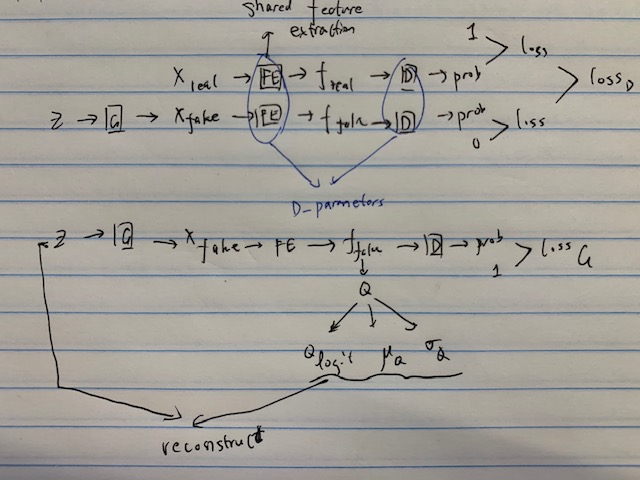 shared feature
extraction
x real → FE → f real → D → prob 1 > loss
z → G → x fake → FE → f fake → D → prob 0 > loss
loss D
D-parameters
z → G → x fake → FE → f fake → D → prob 1 > loss G
Q
Q logit μ Q σ Q
reconstruct